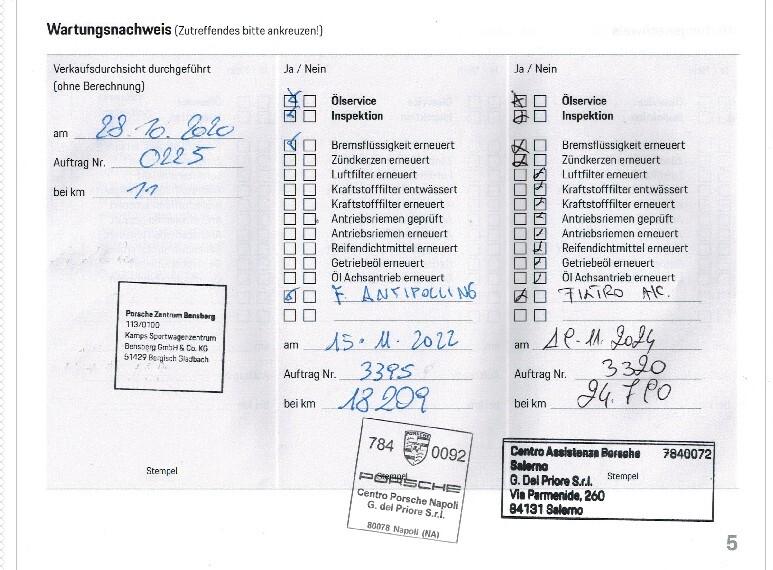 Wartungsnachweis (Zutreffendes bitte ankreuzen!)
Verkaufsdurchsicht durchgeführt
(ohne Berechnung)
am 28.10.2020
Auftrag Nr. 0225
bei km 11
Porsche Zentrum Bensberg
113/0100
Kamps Sportwagenzentrum
Bensberg GmbH & Co. KG
51429 Bergisch Gladbach
Stempel
Ja / Nein
Ölservice
Inspektion
Bremsflüssigkeit erneuert
Zündkerzen erneuert
Luftfilter erneuert
Kraftstofffilter entwässert
Kraftstofffilter erneuert
Antriebsriemen geprüft
Antriebsriemen erneuert
Reifendichtmittel erneuert
Getriebeöl erneuert
Öl Achsantrieb erneuert
F. ANTIPOLLINE
am 15.11.2022
Auftrag Nr. 3395
bei km 18209
784 PORSCHE 0092
Stempel
PORSCHE
Centro Porsche Napoli
G. del Priore S.r.l.
80078 Napoli (NA)
Ja / Nein
Ölservice
Inspektion
Bremsflüssigkeit erneuert
Zündkerzen erneuert
Luftfilter erneuert
Kraftstofffilter entwässert
Kraftstofffilter erneuert
Antriebsriemen geprüft
Antriebsriemen erneuert
Reifendichtmittel erneuert
Getriebeöl erneuert
Öl Achsantrieb erneuert
FILTRO A/C.
am 11.2024
Auftrag Nr. 3320
bei km
Centro Assistenza Porsche 7840072
Salerno
Stempel
G. Del Priore S.r.l.
Via Parmenide, 260
84131 Salerno
5